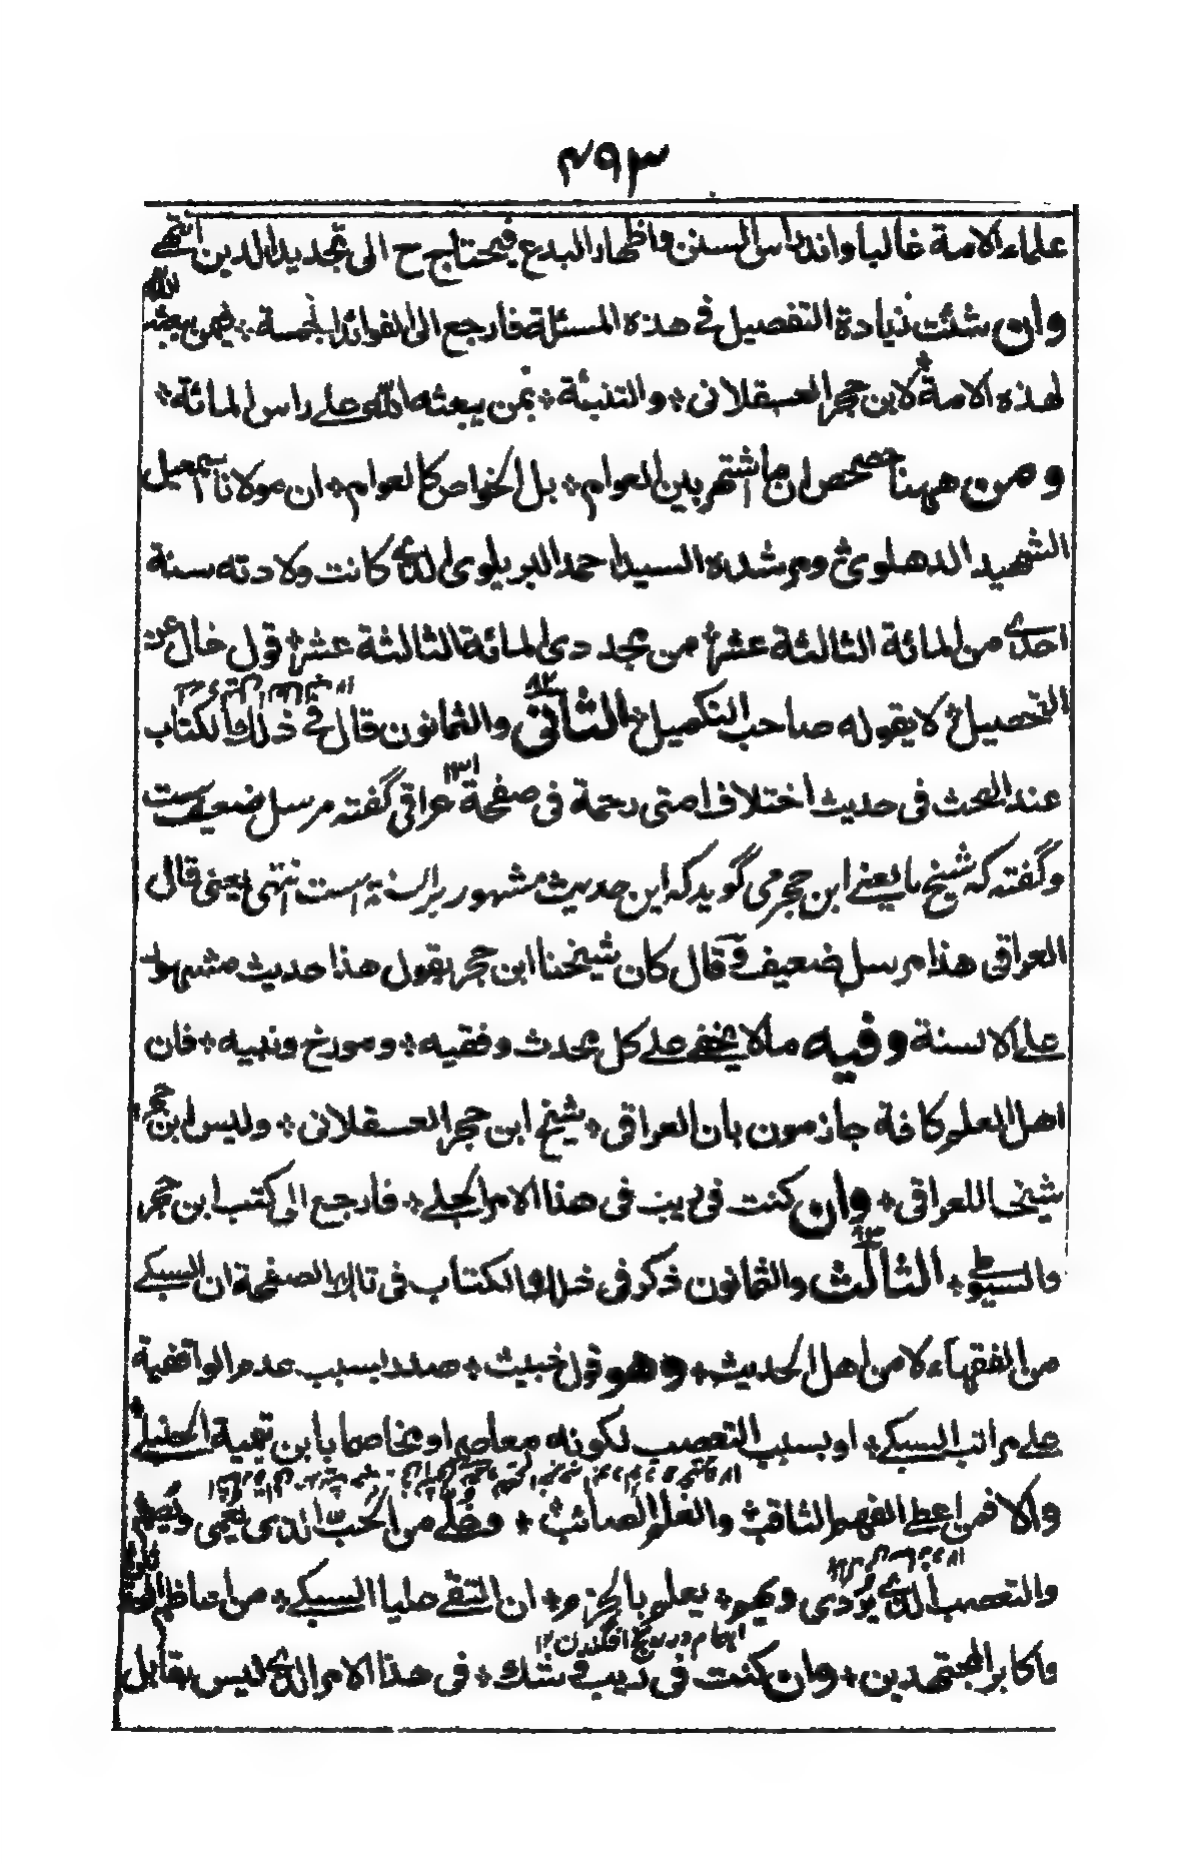 ٤٩٣
علماء الامة غالبا واندراس السنن واظهار البدع فيحتاج ح الى تجديد الدين انتهى
وان شئت زيادة التفصيل فى هذه المسئلة فارجع الى الفوائد الجمسة ÷ فيمن يبعثه الله
لهذه الامة ÷ لابن حجر العسقلانى ÷ والتنبئة ÷ بمن يبعثه الله على راس المائة ÷
ومن ههنا حصحص ان ما اشتهر بين العوام ÷ بل الخواص كالعوام ÷ ان مولانا اسمعيل
الشهيد الدهلوى ومرشده السيد احمد البريلوى الذى كانت ولادته سنة
احدى من المائة الثالثة عشر ÷ من مجددى المائة الثالثة عشر ÷ قول خال عن
التحصيل لا يقوله صاحب التكميل الثانى والثمانون قال فى ذلك الكتاب
٨٢
عند البحث فى حديث اختلاف امتى رحمة فى صفحة عراقى گفته مرسل ضعيف ست
١٣١
وگفته كه شيخ ما يعنے ابن حجر مى گويد كه اين حديث مشهور بر السنة است انتهى يعنى قال
العراقى هذا مرسل ضعيف وقال كان شيخنا ابن حجر يقول هذا حديث مشهور
على الالسنة وفيه ما لا يخفى على كل محدث وفقيه ÷ ومورخ ونبيه ÷ فان
اهل العلم كافة جازمون بان العراقى ÷ شيخ ابن حجر العسقلانى ÷ وليس ابن حجر
شيخا للعراقى ÷ وان كنت فى ريب فى هذا الامر الجلے ÷ فارجع الى كتب ابن حجر
والسيوطى ÷ الثالث والثمانون ذكر فى ذلك الكتاب فى تلك الصفحة ان السبكے
٨٣
من الفقهاء لا من اهل الحديث ÷ وهو قول خبيث ÷ صدر بسبب عدم الواقفية
على مراتب السبكے ÷ او بسبب التعصب لكونه معاصرا ومخاصما بابن تيمية الحنبلے
والا فمن اعطى الفهم الثاقب ÷ والعلم الصائب ÷ وخلى من الحب الذى يعمى ويصم
والتعصب الذى يؤذى ويهم ÷ يعلم بالجزم ÷ ان التقى عليا السبكے ÷ من افاظم
واكابر المجتهدين ÷ وان كنت فى ريب وشك ÷ فى هذا الامر الذى ليس يقابل